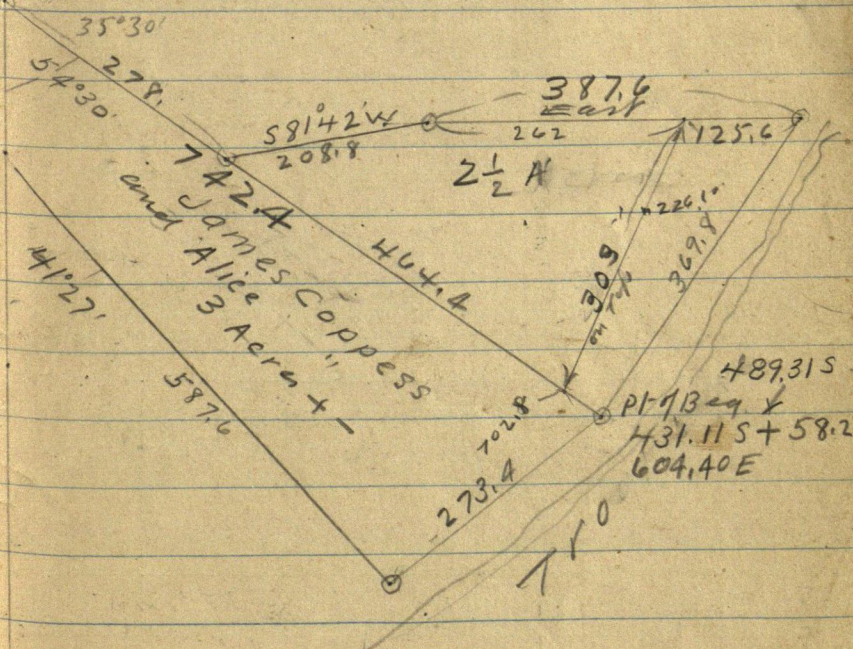 35°30'
54°30'
278.
S81°42'W
208.8
387.6
East
262
125.6
2½ A
742.4
James Coppess
and Alice "
3 Acres + -
464.4
309
on top
369.8
41°27'
587.6
702.8
273.4
489.31 S
Pt of Beg.
431.11 S + 58.2
604.40 E